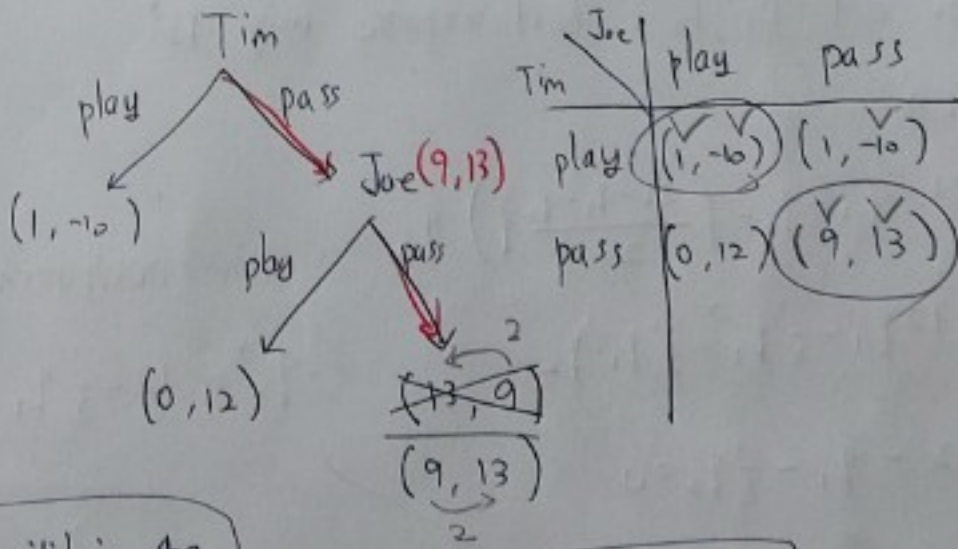 Tim
play pass
(1, -10)
Joe (9,13)
play pass
(0, 12)
2
(13, 9)
(9, 13)
2
Joe
Tim play pass
play (1, -10) (1, -10)
pass (0, 12) (9, 13)